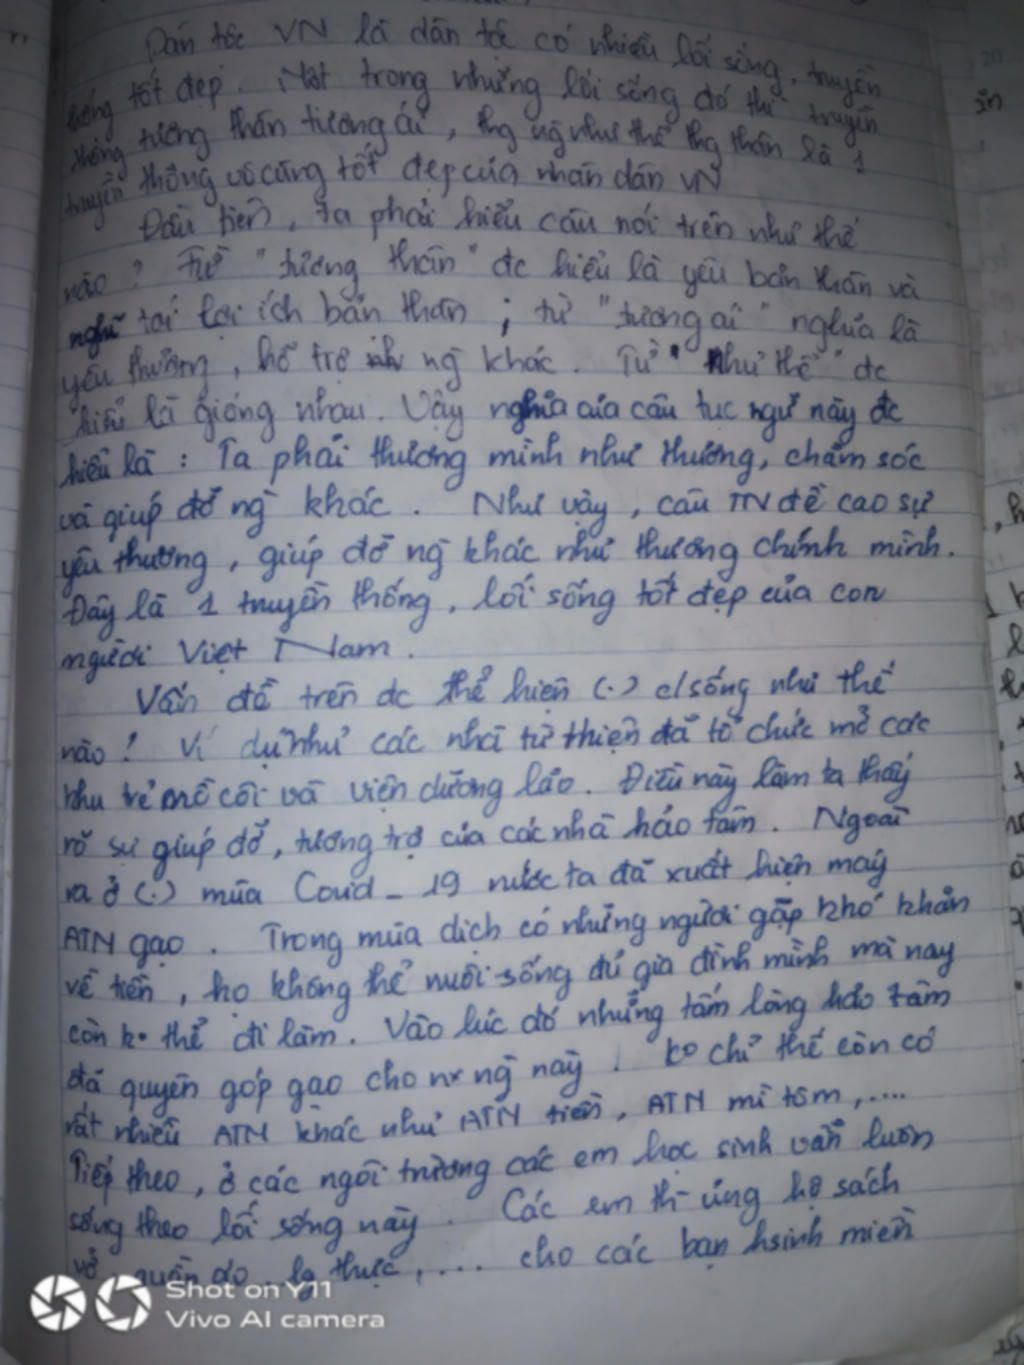 Dân tộc VN là dân tộc có nhiều lối sống, truyền
thống tốt đẹp. Một trong những lối sống đó thì truyền
thống tương thân tương ái, thg ng như thể thg thân là 1
truyền thống vô cùng tốt đẹp của nhân dân VN
Đầu tiên, ta phải hiểu câu nói trên như thế
nào? Từ "tương thân" đc hiểu là yêu bản thân và
nghĩ tới lợi ích bản thân; từ "tương ái" nghĩa là
yêu thương, hỗ trợ ng khác. Từ "như thể" đc
hiểu là giống nhau. Vậy nghĩa của câu tục ngữ này đc
hiểu là: Ta phải thương mình như thương, chăm sóc
và giúp đỡ ng khác. Như vậy, câu TN đề cao sự
yêu thương, giúp đỡ ng khác như thương chính mình.
Đây là 1 truyền thống, lối sống tốt đẹp của con
người Việt Nam.
Vấn đề trên đc thể hiện (.) c/sống như thế
nào! Ví dụ như các nhà từ thiện đã tổ chức mở các
khu trẻ mồ côi và viện dưỡng lão. Điều này làm ta thấy
rõ sự giúp đỡ, tương trợ của các nhà hảo tâm. Ngoài
ra ở (.) mùa Covid-19 nước ta đã xuất hiện máy
ATN gạo. Trong mùa dịch có những người gặp khó khăn
về tiền, họ không thể nuôi sống đủ gia đình mình mà nay
còn ko thể đi làm. Vào lúc đó những tấm lòng hảo tâm
đã quyên góp gạo cho nx ng này! ko chỉ thế còn có
rất nhiều ATN khác như ATN tiền, ATN mì tôm,....
Tiếp theo, ở các ngôi trường các em học sinh vẫn luôn
sống theo lối sống này. Các em th- ủng hộ sách
vở, quần áo, lg thực,... cho các bạn hsinh miền
Shot on Y11
Vivo AI camera